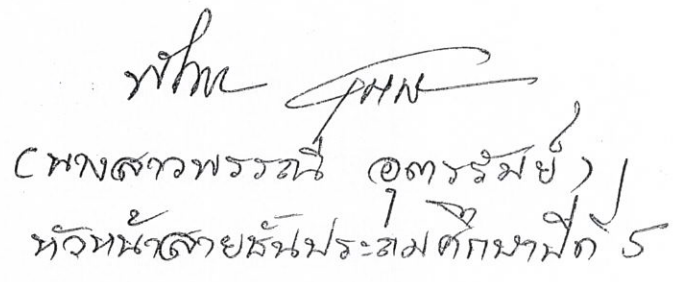 (นางสาวพรรณี อุตรรัมย์)
หัวหน้าสายชั้นประถมศึกษาปีที่ 5